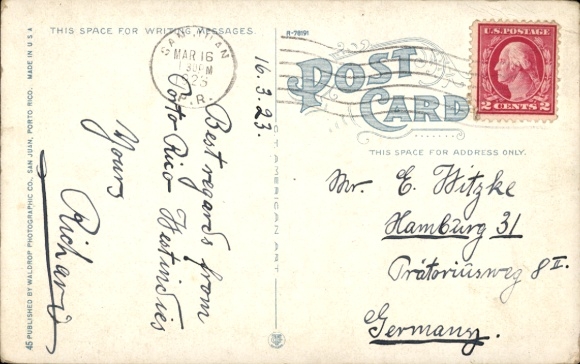 THIS SPACE FOR WRITING MESSAGES.
SAN JUAN
MAR 16
130PM
1923
P.R.
R-78191
POST
CARD
U.S. POSTAGE
2 CENTS 2
THIS SPACE FOR ADDRESS ONLY.
16.3.23.
Best regards from
Porto Rico Westindies
Yours
Richard
Mr. E. Witzke
Hamburg 31
Prätoriusweg 8 II.
Germany.
AMERICAN ART
45 PUBLISHED BY WALDROP PHOTOGRAPHIC CO., SAN JUAN, PORTO RICO. MADE IN U S A